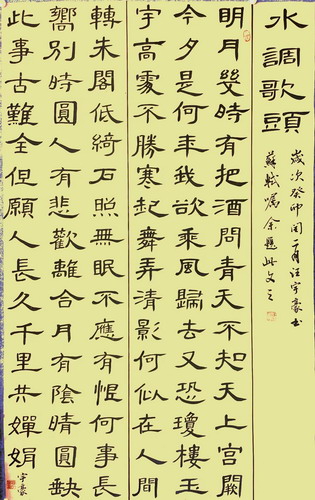 水調歌頭
歲次癸卯閏二月汪宇豪書
蘇軾囑余題此文之
明月幾時有把酒問青天不知天上宮闕
今夕是何年我欲乘風歸去又恐瓊樓玉
宇高處不勝寒起舞弄清影何似在人間
轉朱閣低綺石照無眠不應有恨何事長
嚮別時圓人有悲歡離合月有陰晴圓缺
此事古難全但願人長久千里共嬋娟
宇豪